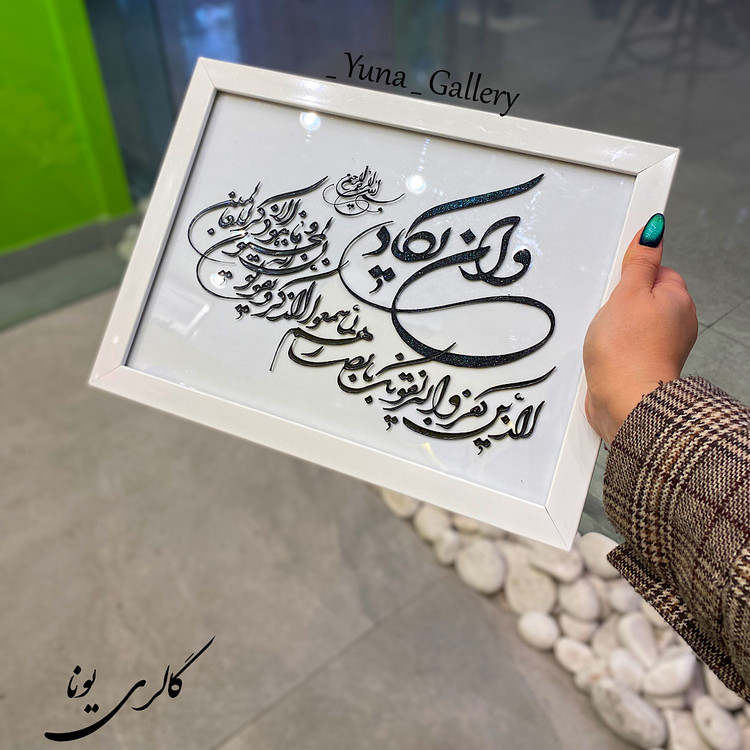 _ Yuna _ Gallery
بسم الله الرحمن الرحیم
وان یکاد
الذین کفروا لیزلقونک بابصارهم
لما سمعوا الذکر و یقولون
انه لمجنون
و ما هو الا ذکر للعالمین
گالری یونا